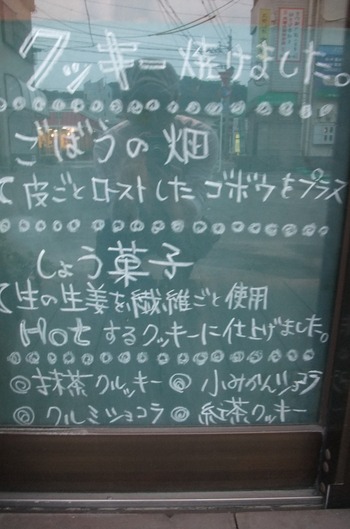 クッキー焼けました。
ごぼうの畑
皮ごとローストしたゴボウをプラス
しょう菓子
生の生姜を繊維ごと使用
Hotするクッキーに仕上げました。
◎抹茶クルッキー ◎小みかんショコラ
◎クルミショコラ ◎紅茶クッキー